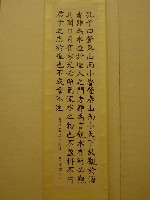 孔子登東山而小魯登泰山而小天下故觀於海
者難為水遊於聖人之門者難為言觀水有術必觀
其瀾日月有明容光必照焉流水之為物也不盈科不行
君子之志於道也不成章不達